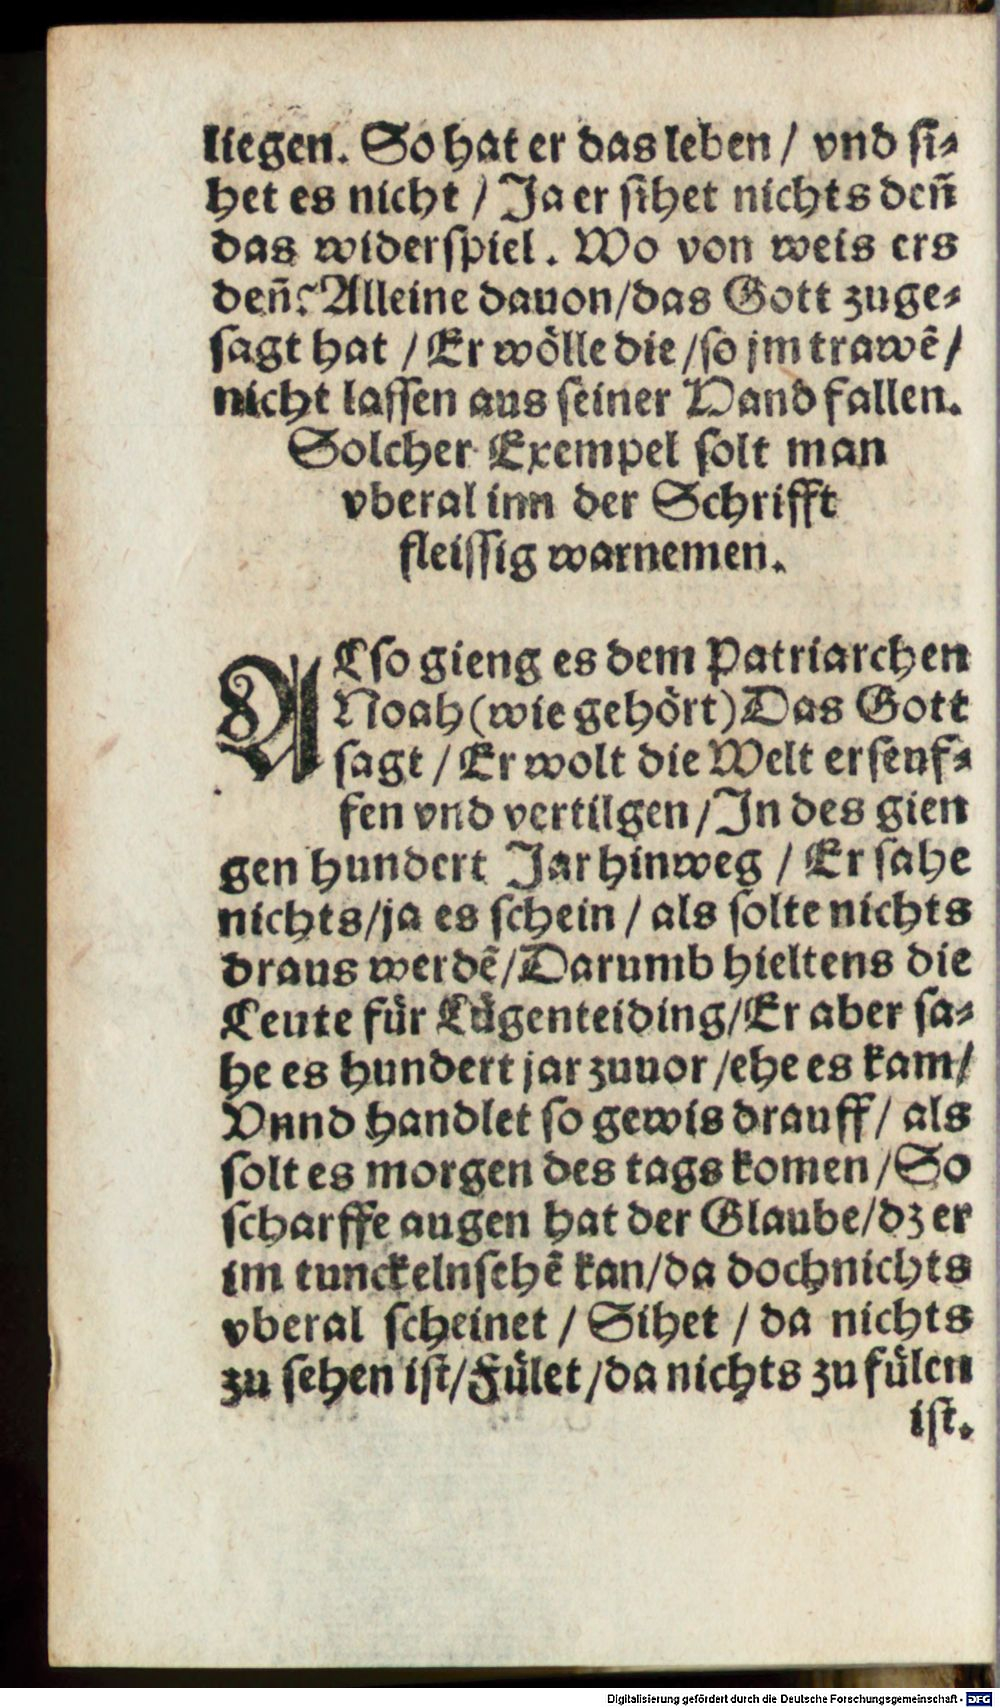 liegen. So hat er das leben / vnd si⸗
het es nicht / Ja er sihet nichts den̄
das widerspiel. Wo von weis ers
den̄? Alleine dauon/das Gott zuge⸗
sagt hat / Er wölle die /so jm trawē/
nicht lassen aus seiner Hand fallen.
Solcher Exempel solt man
vberal inn der Schrifft
fleissig warnemen.
ALso gieng es dem Patriarchen
Noah (wie gehört) Das Gott
sagt / Er wolt die Welt erseuf⸗
fen vnd vertilgen/In des gien
gen hundert Jar hinweg / Er sahe
nichts/ja es schein / als solte nichts
draus werdē/Darumb hieltens die
Leute für Lügenteiding/Er aber sa⸗
he es hundert jar zuuor /ehe es kam/
Vnnd handlet so gewis drauff/ als
solt es morgen des tags komen /So
scharffe augen hat der Glaube/dz er
im tunckeln sehē kan/da doch nichts
vberal scheinet / Sihet / da nichts
zu sehen ist/Fület /da nichts zu fülen
ist.
Digitalisierung gefördert durch die Deutsche Forschungsgemeinschaft - DFG